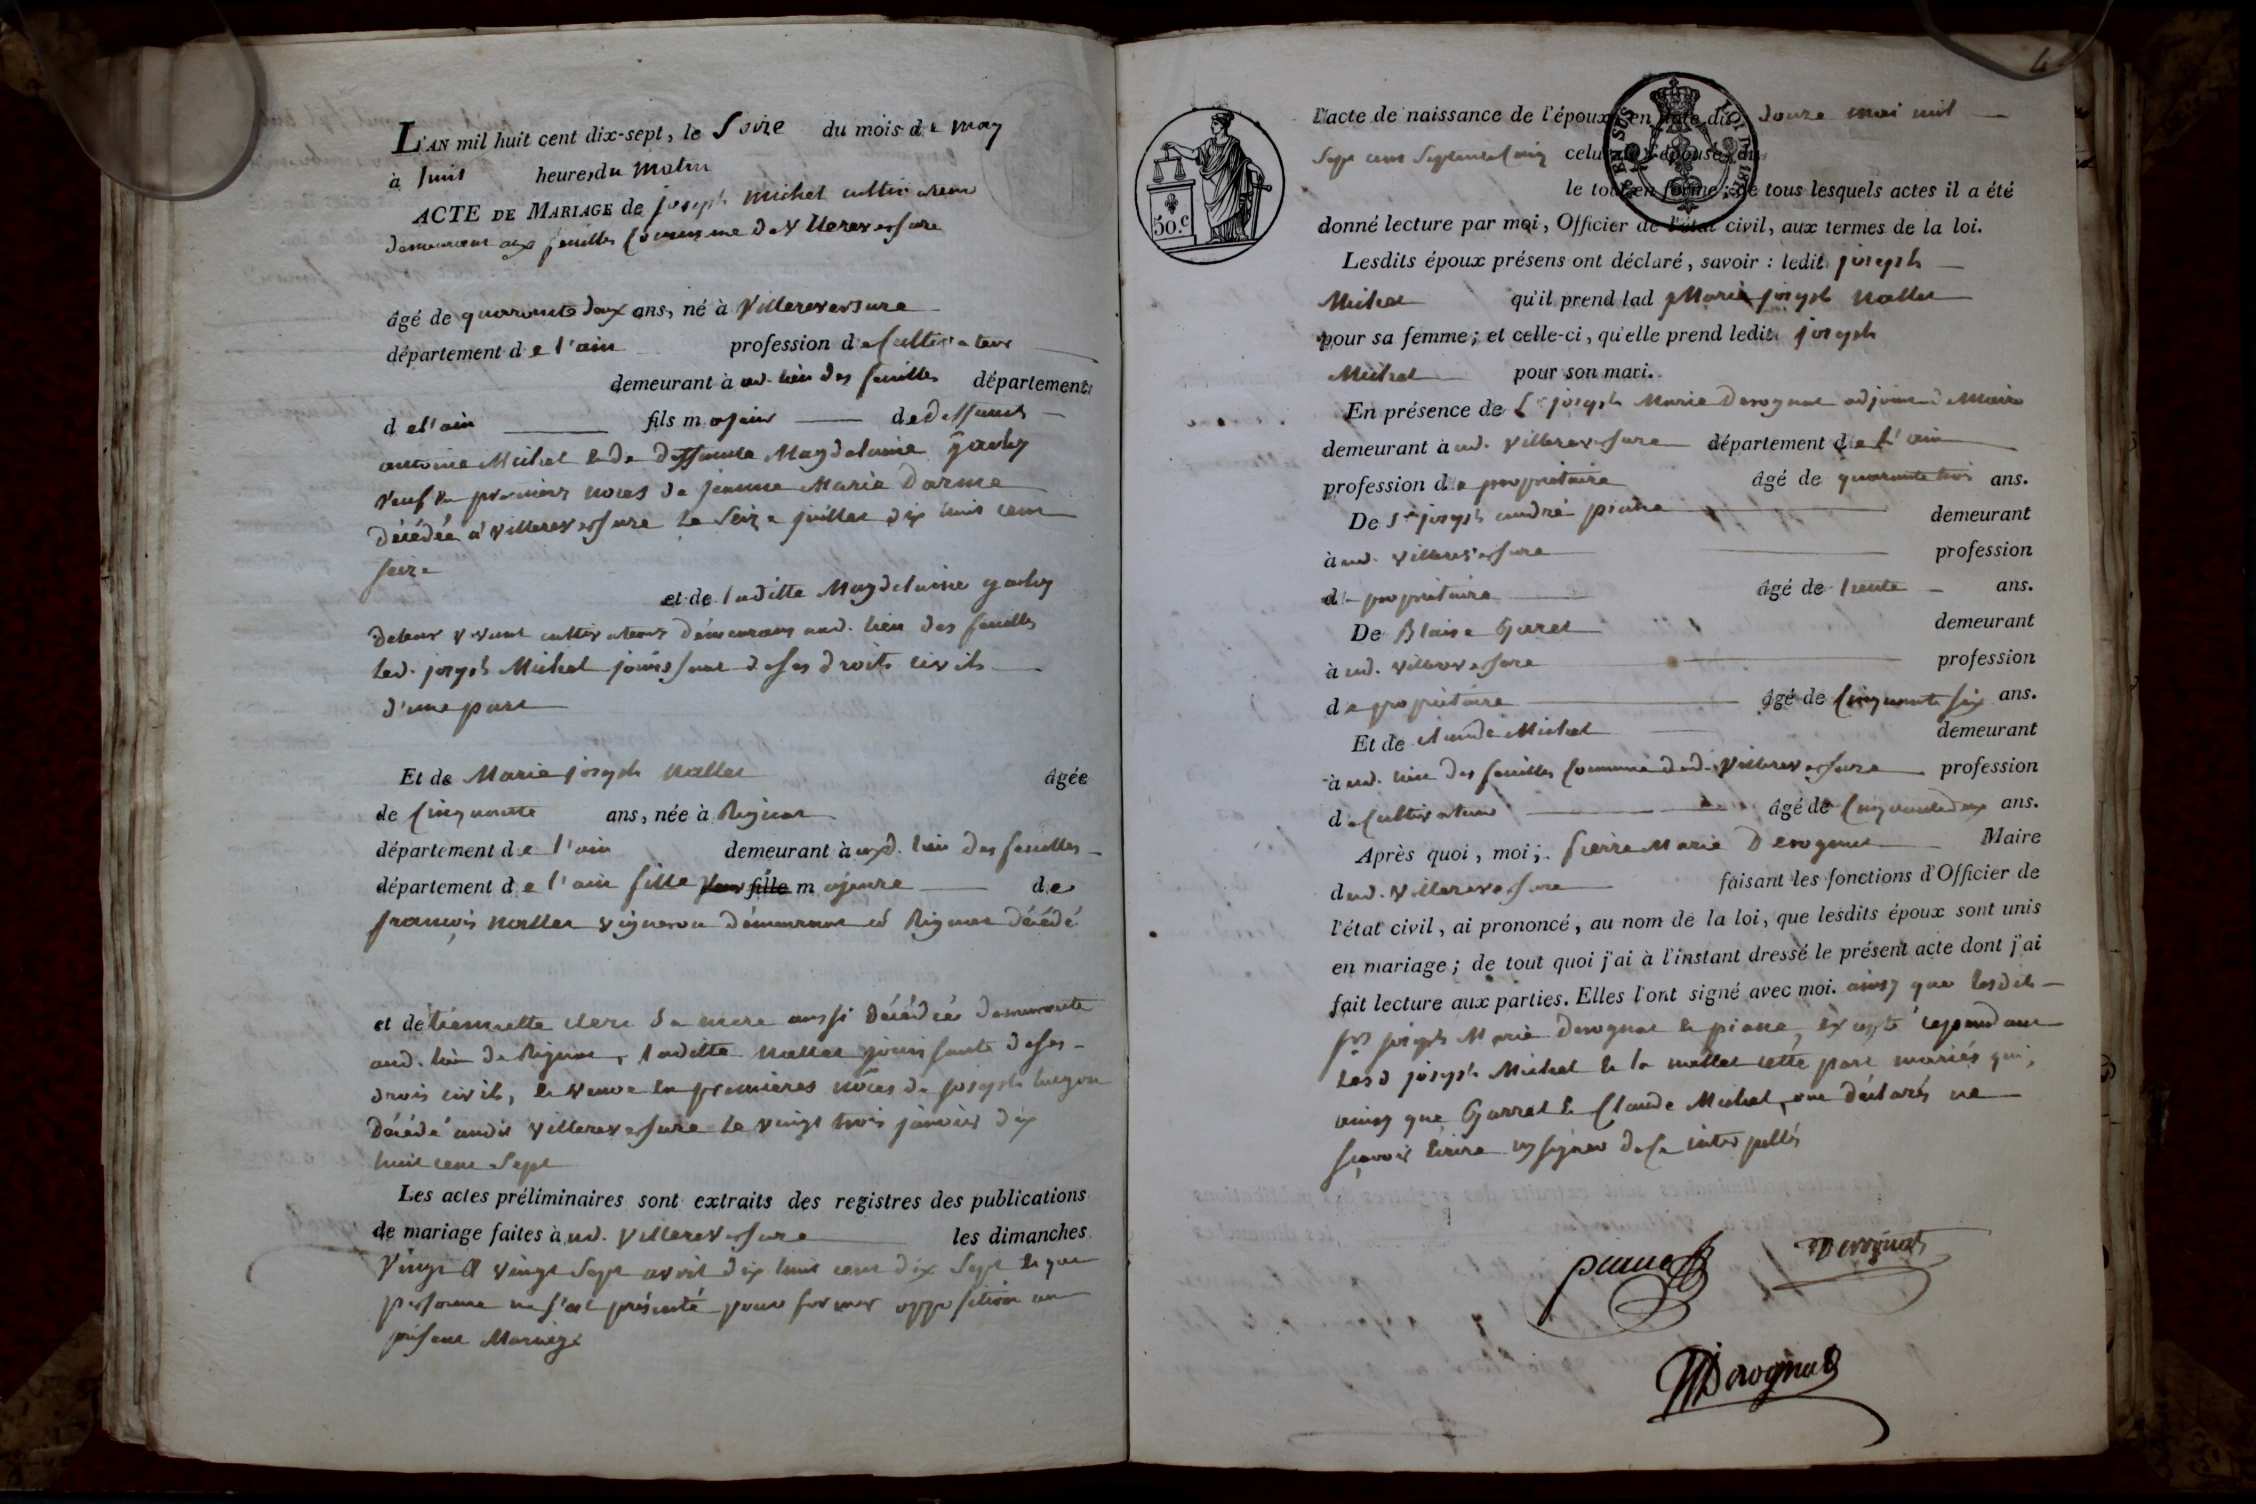 L'AN mil huit cent dix-sept, le du mois de may
à huit heures du matin
ACTE DE MARIAGE de joseph Michel cultivateur
demeurant aux feuilles Commune de Villereversure
âgé de quarante deux ans, né à Villereversure
département de l'ain profession de Cultivateur
demeurant à ud. lieu des feuilles département
de l'ain fils majeur de deffunct
antoine Michel & de deffunte Magdelaine
veuf en premiere noces de jeanne Marie Darme
décédée à villereversure le Seize juillet dix huit cent
seize
et de laditte Magdelaine
de leur vivant cultivateurs demeurans aud. lieu des feuilles
led. joseph Michel jouissant de ses droits civils
d'une part
Et de Marie joseph Nallet âgée
de Cinquante ans, née à Rignat
département de l'ain demeurant à ud. lieu des feuilles
département de l'ain fille fille majeure de
françois Nallet vigneron demeurant à Rignat décédé
et de Clerc Sa mere aussi décédée demeurante
aud. lieu de Rignat, laditte Nallet jouissante de ses
droits civils, & veuve en premieres nôces de joseph
décédé audit Villereversure le vingt trois janvier dix
huit cent Sept
Les actes préliminaires sont extraits des registres des publications
de mariage faites à ud. Villereversure les dimanches
Vingt & vingt Sept avril dix huit cent dix Sept & que
personne ne s'est présenté pour former opposition au
présent Mariage
4
50.c
L'acte de naissance de l'époux en date du douze mai mil
Sept cent Septante Cinq celui de l'épouse du
le tout en forme; de tous lesquels actes il a été
donné lecture par moi, Officier de l'état civil, aux termes de la loi.
Lesdits époux présens ont déclaré, savoir : ledit joseph
Michel qu'il prend lad Marie joseph Nallet
pour sa femme; et celle-ci, qu'elle prend ledit joseph
Michel pour son mari.
En présence de Sr joseph Marie Derognat adjoint de Maire
demeurant à ud. Villereversure département de l'ain
profession de propriétaire âgé de quarante trois ans.
De Sr joseph andré piane demeurant
à ud. villereversure profession
de propriétaire âgé de trente ans.
De Blaise Garret demeurant
à ud. villereversure profession
de propriétaire âgé de Cinquante six ans.
Et de claude Michel demeurant
à ud. lieu des feuilles Commune dud. Villereversure profession
de Cultivateur âgé de Cinquante deux ans.
Après quoi, moi, Pierre Marie Derognat Maire
dud. Villereversure faisant les fonctions d'Officier de
l'état civil, ai prononcé, au nom de la loi, que lesdits époux sont unis
en mariage; de tout quoi j'ai à l'instant dressé le présent acte dont j'ai
fait lecture aux parties. Elles l'ont signé avec moi. ainsy que lesdits
srs joseph Marie Derognat & piane, excepté cependant
lesd joseph Michel & la nallet cette part mariés qui,
ainsy que Garret & Claude Michel, ont déclarés ne
sçavoir écrire ny signer de ce interpellés
piane
Derognat
Derognat